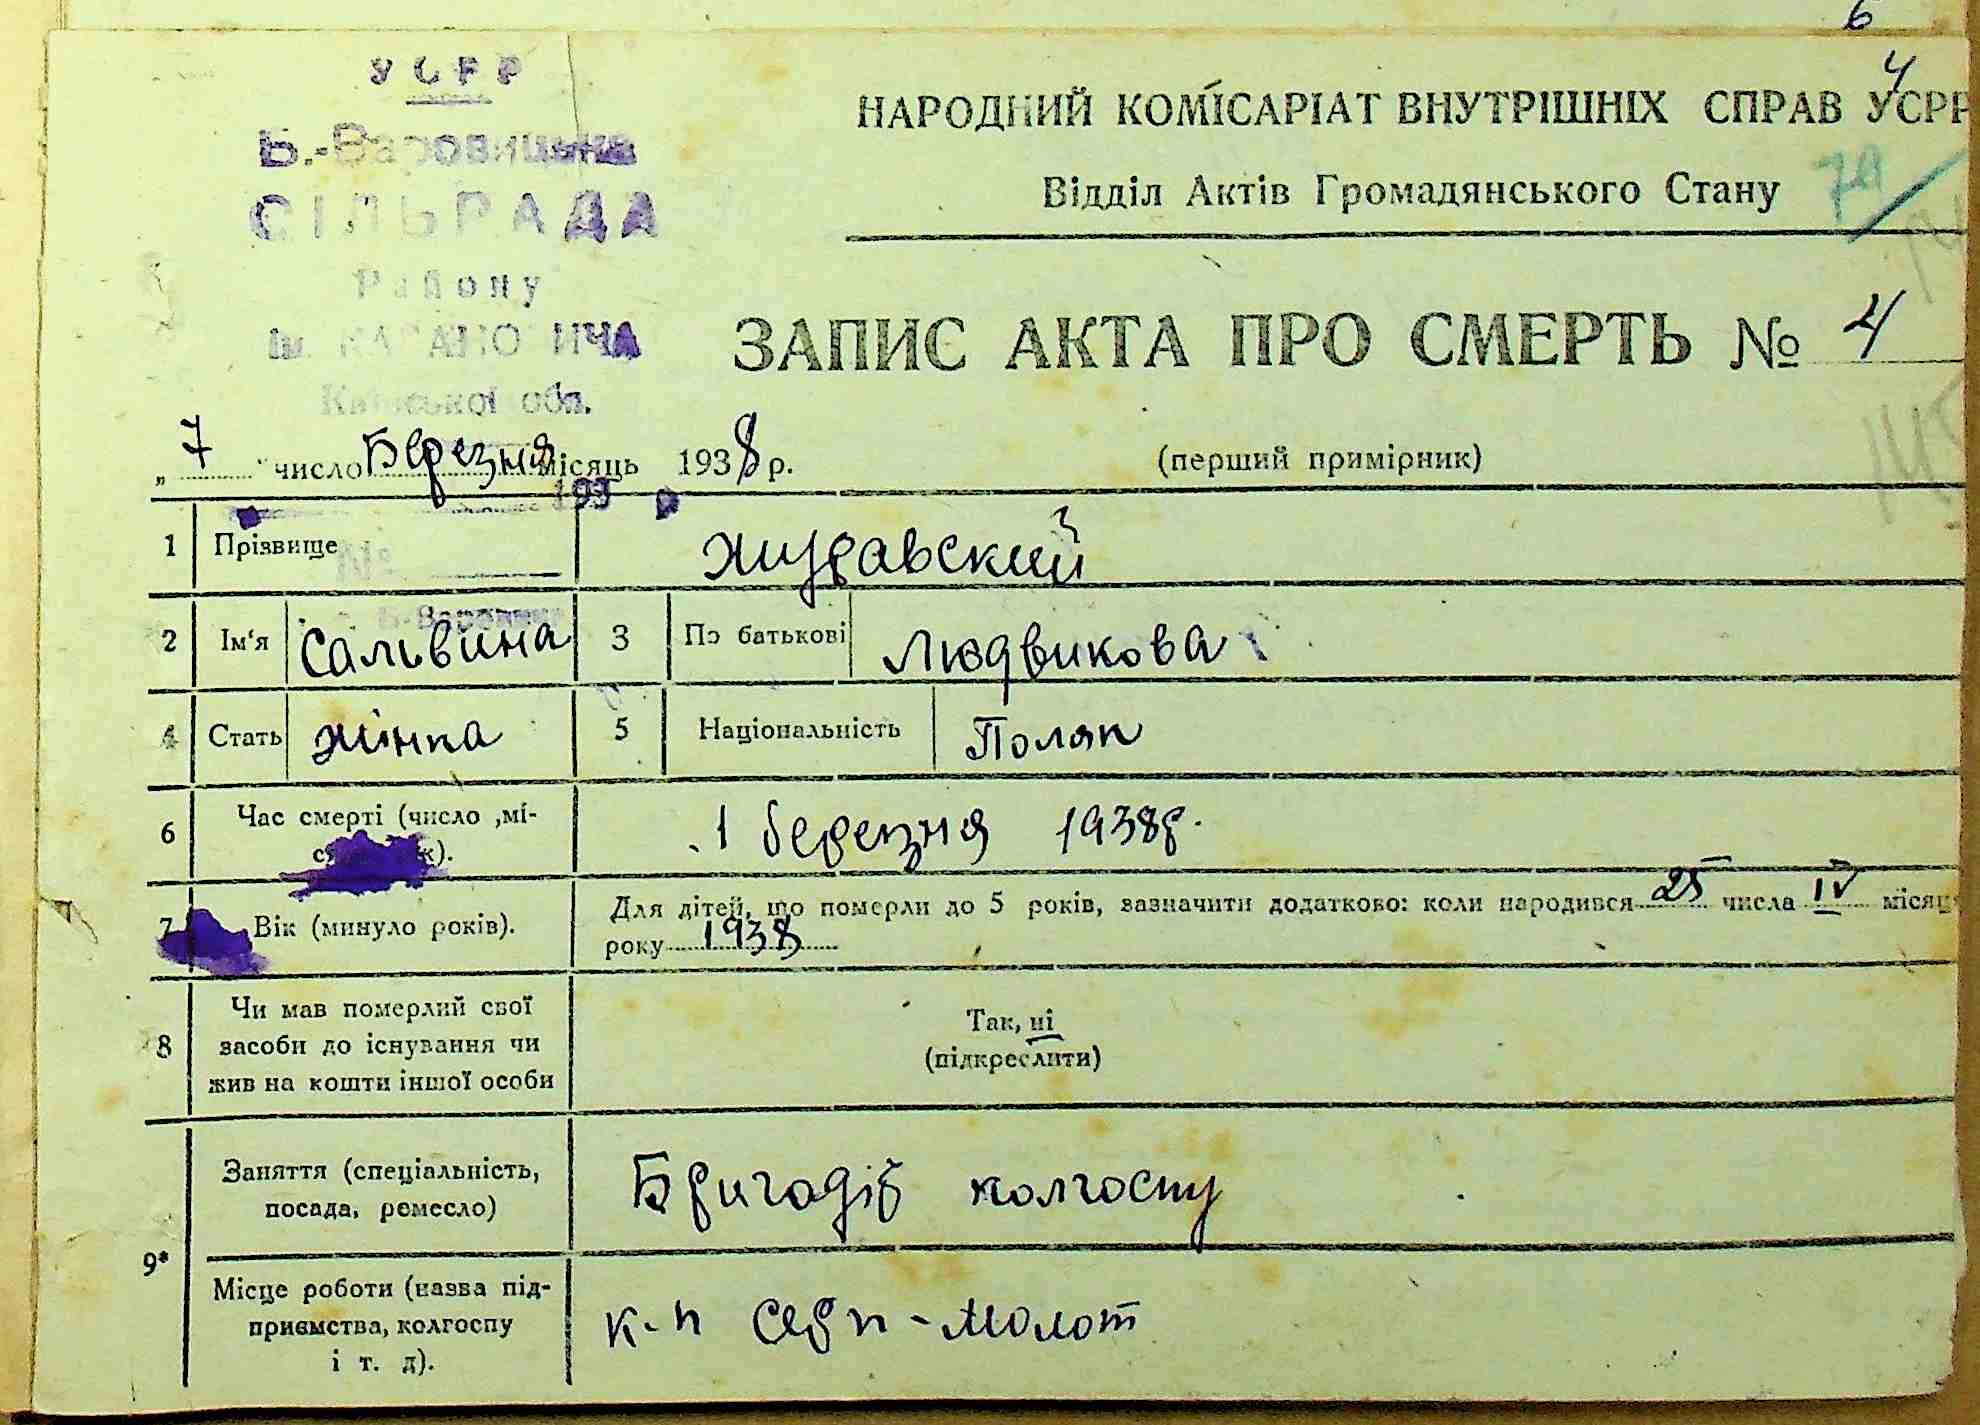 6
4
УСРР
НАРОДНИЙ КОМІСАРІАТ ВНУТРІШНІХ СПРАВ УСРР
Б.-Варовицька
74
СІЛЬРАДА
Відділ Актів Громадянського Стану
Району
ім. КАГАНОВИЧА
ЗАПИС АКТА ПРО СМЕРТЬ № 4
Київської обл.
„ 7 “ число Березня місяць 1938 р.
(перший примірник)
193
1 Прізвище Журавский
№
2 Ім'я Сальвина 3 По батькові Людвикова
4 Стать жінка 5 Національність Поляк
6 Час смерті (число ,мі-
1 березня 1938р.
7 Вік (минуло років). Для дітей, що померли до 5 років, зазначити додатково: коли народився 25 числа IV місяц
року 1938
8 Чи мав померлий свої
засоби до існування чи
жив на кошти іншої особи
Так, ні
(підкреслити)
9*
Заняття (спеціальність,
посада, ремесло)
Бригадір колгоспу
Місце роботи (назва під-
приємства, колгоспу
і т. д).
к-п Серп-Молот